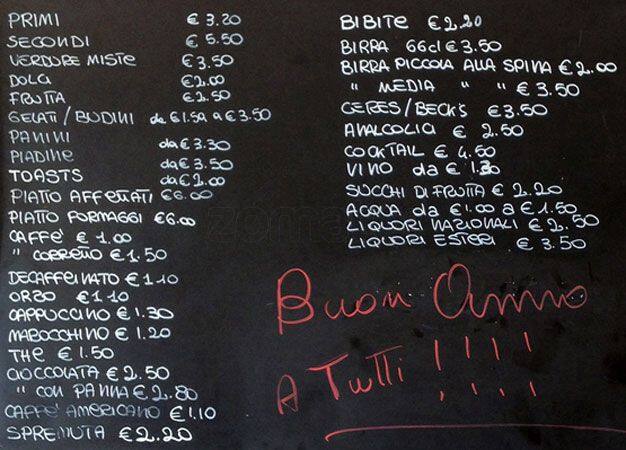 PRIMI € 3.20
SECONDI € 5.50
VERDURE MISTE € 3.50
DOLCI € 2.00
FRUTTA € 2.50
GELATI / BUDINI da € 1.50 a € 3.50
PANINI da € 3.30
PIADINE da € 3.50
TOASTS da € 2.00
PIATTO AFFETTATI € 6.00
PIATTO FORMAGGI € 6.00
CAFFE' € 1.00
" CORRETTO € 1.50
DECAFFEINATO € 1.10
ORZO € 1.10
CAPPUCCINO € 1.30
MAROCCHINO € 1.20
THE € 1.50
CIOCCOLATA € 2.50
" CON PANNA € 2.80
CAFFE' AMERICANO € 1.10
SPREMUTA € 2.20
BIBITE € 2.20
BIRRA 66cl € 3.50
BIRRA PICCOLA ALLA SPINA € 2.00
" MEDIA " " € 3.50
CERES/BECK'S € 3.50
ANALCOLICI € 2.50
COCKTAIL € 4.50
VINO da € 1.30
SUCCHI DI FRUTTA € 2.20
ACQUA da € 1.00 a € 1.50
LIQUORI NAZIONALI € 2.50
LIQUORI ESTERI € 3.50
Buon Anno
A Tutti !!!!